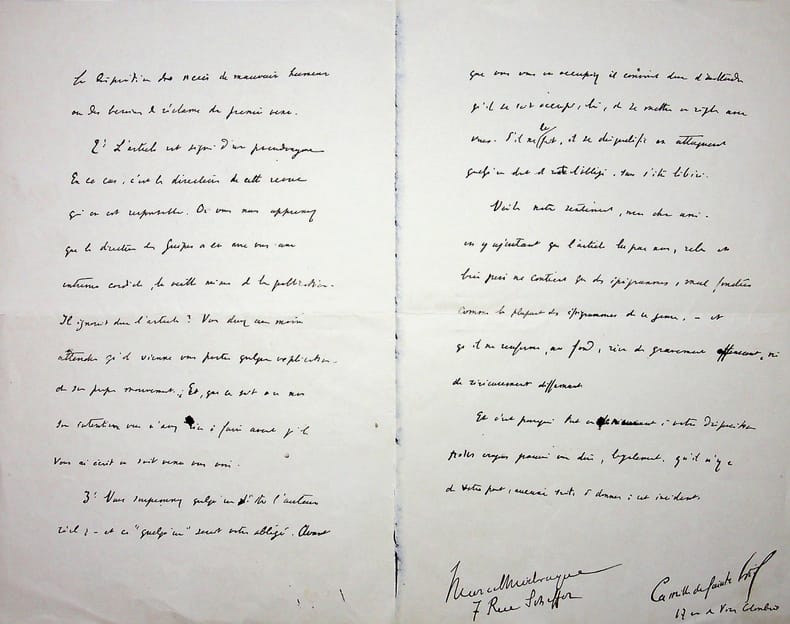 la disposition des accès de mauvaise humeur
ou des besoins de réclame du premier venu.
2° L'article est signé d'un pseudonyme
En ce cas, c'est le directeur de cette revue
qui en est responsable. Or vous nous apprenez
que le directeur des Guêpes a eu avec vous une
entrevue cordiale, la veille même de la publication.
Il ignorait donc l'article ? Vous devez au moins
attendre qu'il vienne vous porter quelque explication
de son propre mouvement. Et, que ce soit ou non
son intention vous n'avez rien à faire avant qu'il
vous ai écrit ou soit venu vous voir.
3° Vous soupçonnez quelqu'un d'être l'auteur
réel ; – et ce "quelqu'un" serait votre obligé. Avant
que vous vous en occupiez il convient donc d'attendre
qu'il se soit occupé, lui, de se mettre en règle avec
vous. S'il ne le fait, il se disqualifie en attaquant
quelqu'un dont il reste l'obligé, sans s'être libéré.
Voilà notre sentiment, mon cher ami.
en y ajoutant que l'article lu par nous, relu et
ne contient que des épigrammes, mal fondées
comme la plupart des épigrammes de ce genre, – et
qu'il ne renferme, au fond, rien de gravement offensant, ni
de sérieusement diffamant
Et c'est pourquoi tout en à votre disposition
nous croyons pouvoir vous dire, loyalement, qu'il n'y a
de votre part, aucune suite à donner à cet incident.
Marcel
7 Rue Scheffer
Camille de Sainte Croix
17 rue de